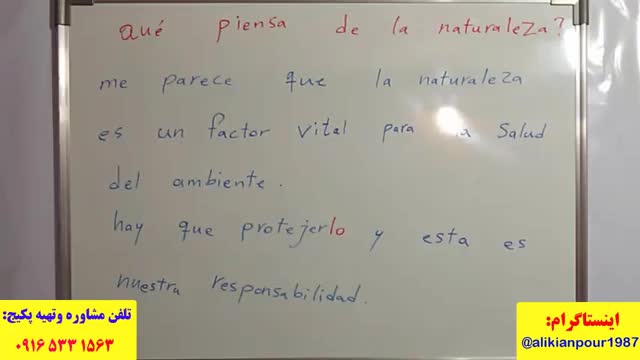 qué piensa de la naturaleza?
me parece que la naturaleza
es un factor vital para la salud
del ambiente.
hay que protejerlo y esta es
nuestra responsabilidad.
تلفن مشاوره وتهیه پکیج:
۰۹۱۶ ۵۳۳ ۱۵۶۳
اینستاگرام:
@alikianpour1987